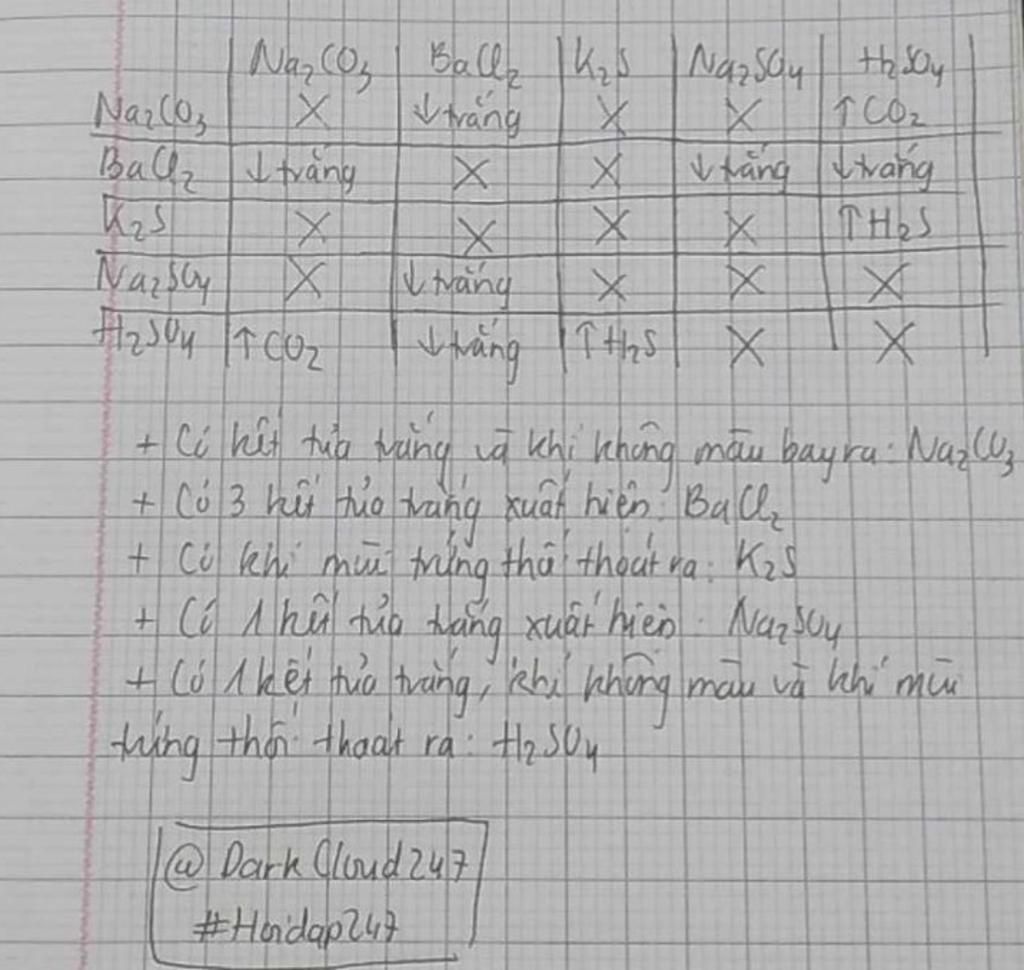 Na₂CO₃ BaCl₂ K₂S Na₂SO₄ H₂SO₄
Na₂CO₃ X ↓trắng X X ↑CO₂
BaCl₂ ↓trắng X X ↓trắng ↓trắng
K₂S X X X X ↑H₂S
Na₂SO₄ X ↓trắng X X X
H₂SO₄ ↑CO₂ ↓trắng ↑H₂S X X
+ Có kết tủa trắng và khí không màu bay ra: Na₂CO₃
+ Có 3 kết tủa trắng xuất hiện: BaCl₂
+ Có khí mùi trứng thối thoát ra: K₂S
+ Có 1 kết tủa trắng xuất hiện: Na₂SO₄
+ Có 1 kết tủa trắng, khí không màu và khí mùi
trứng thối thoát ra: H₂SO₄
@DarkCloud247
#Hoidap247